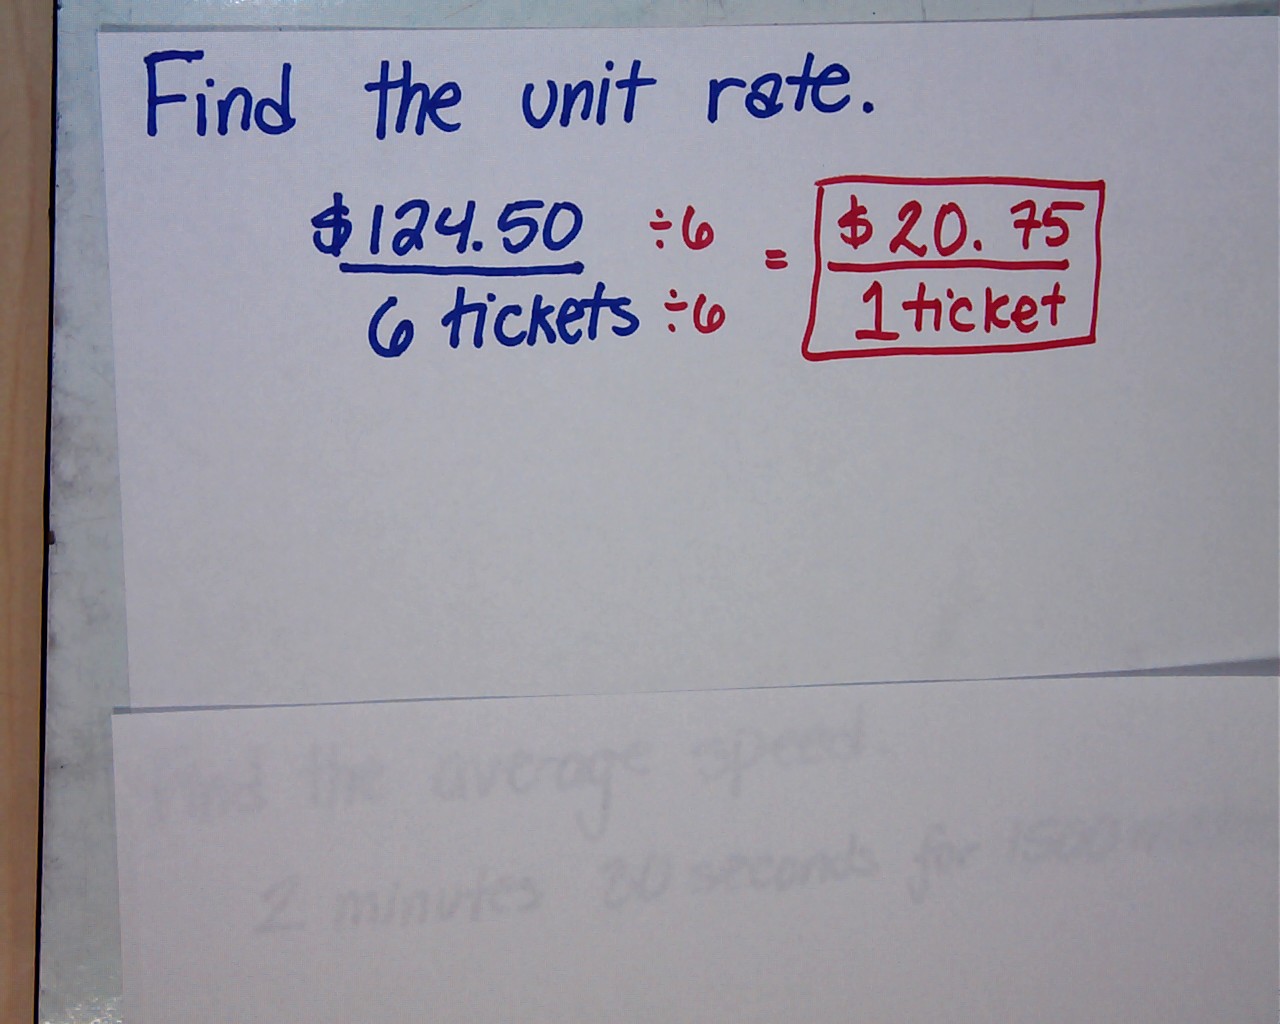 Find the unit rate.
$124.50 ÷6 = $20.75
6 tickets ÷6 1 ticket
Find the average speed.
2 minutes 30 seconds for 1500